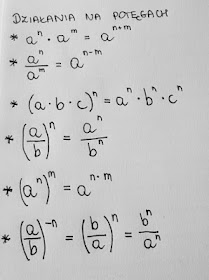 DZIAŁANIA NA POTĘGACH
* aⁿ · aᵐ = aⁿ⁺ᵐ
* aⁿ/aᵐ = aⁿ⁻ᵐ
* (a·b·c)ⁿ = aⁿ·bⁿ·cⁿ
* (a/b)ⁿ = aⁿ/bⁿ
* (aⁿ)ᵐ = a^(n·m)
* (a/b)⁻ⁿ = (b/a)ⁿ = bⁿ/aⁿ